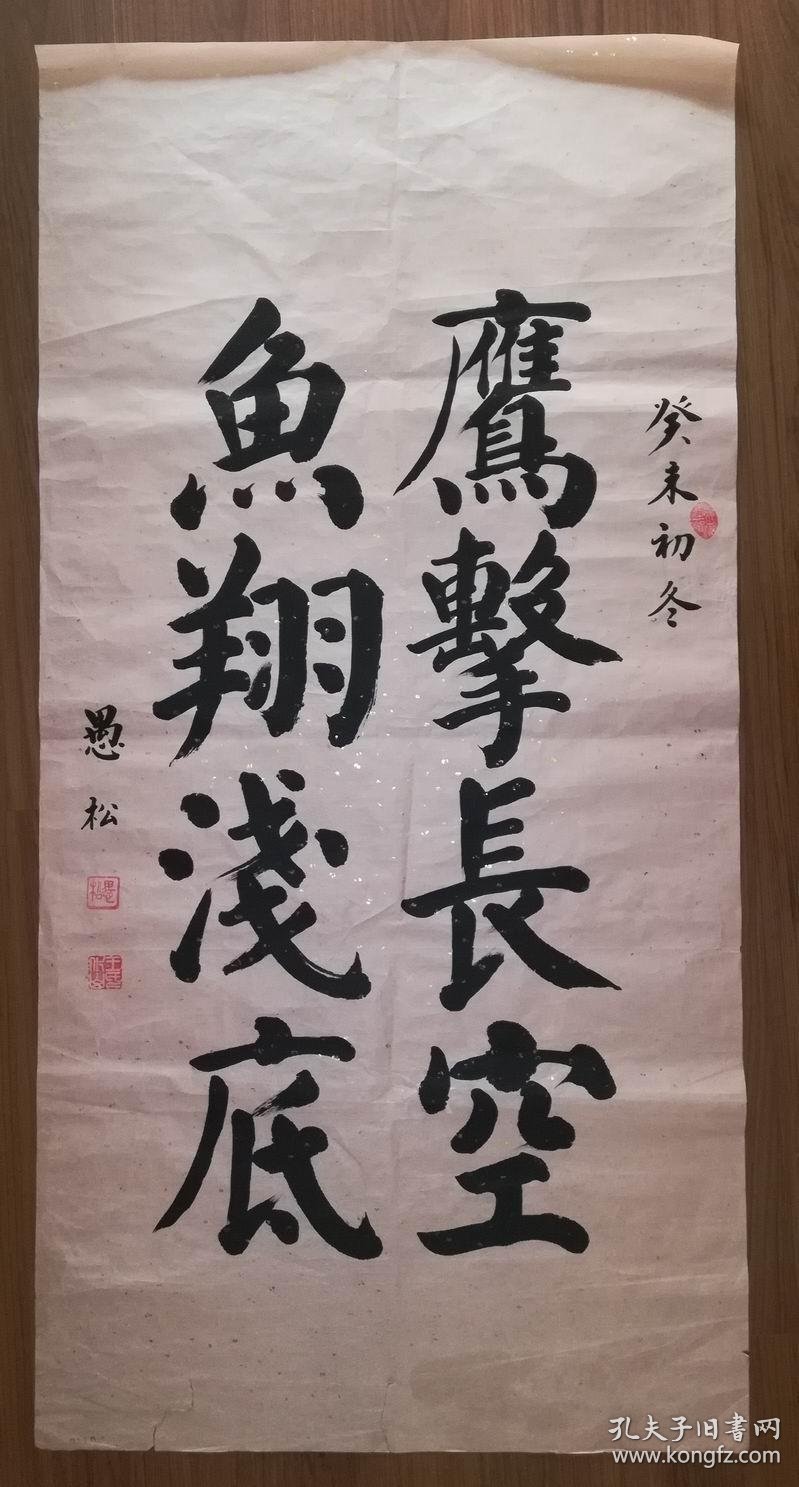 癸未初冬
鷹擊長空
魚翔淺底
愚松
愚松
孔夫子旧書网
www.kongfz.com